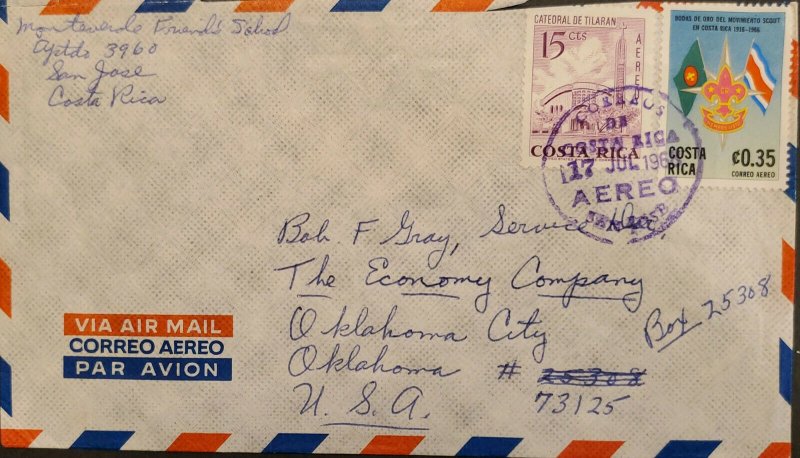 Monteverde Friends School
Aptdo 3960
San Jose
Costa Rica
CATEDRAL DE TILARAN
15 CTS
AEREO
COSTA RICA
BODAS DE ORO DEL MOVIMIENTO SCOUT
EN COSTA RICA 1916-1966
COSTA
RICA
₡0.35
CORREO AEREO
CORREOS
DE
COSTA RICA
17 JUL 196
AEREO
SAN JOSE
Bob F Gray, Service
The Economy Company
Oklahoma City
Oklahoma # 25308
U. S. A. 73125
Box 25308
VIA AIR MAIL
CORREO AEREO
PAR AVION